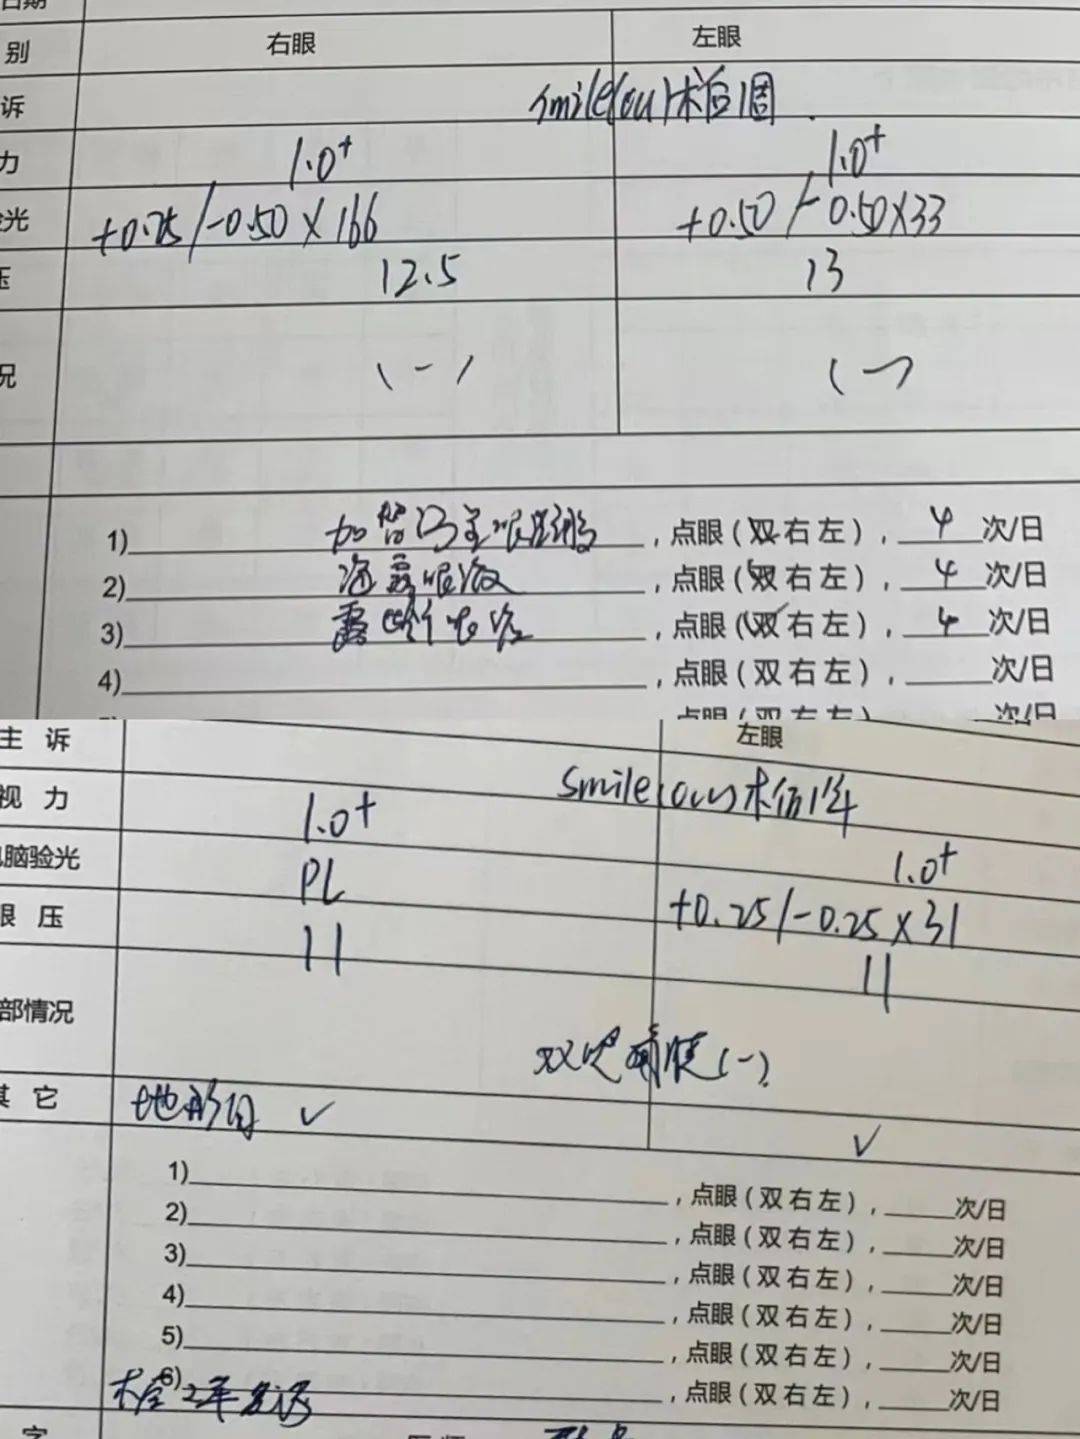 日期
别 右眼 左眼
诉 smile(ou)术后1周
力 1.0+ 1.0+
验光 +0.75/-0.50×166 +0.50/-0.50×33
压 12.5 13
况 (-) (-)
1) 加替沙星眼用凝胶 ，点眼（双右左），4次/日
2) 海露眼液 ，点眼（双右左），4次/日
3) ，点眼（双右左），4次/日
4) ，点眼（双右左），次/日
点眼（双右左）次/日
主诉 左眼
smile(ou)术后1年
视力 1.0+ 1.0+
电脑验光 PL +0.25/-0.25×31
眼压 11 11
部情况 双眼角膜(-)
其它 地形图 ✓ ✓
1) ，点眼（双右左），次/日
2) ，点眼（双右左），次/日
3) ，点眼（双右左），次/日
4) ，点眼（双右左），次/日
5) ，点眼（双右左），次/日
6) ，点眼（双右左），次/日
术后2年复诊
字 医师